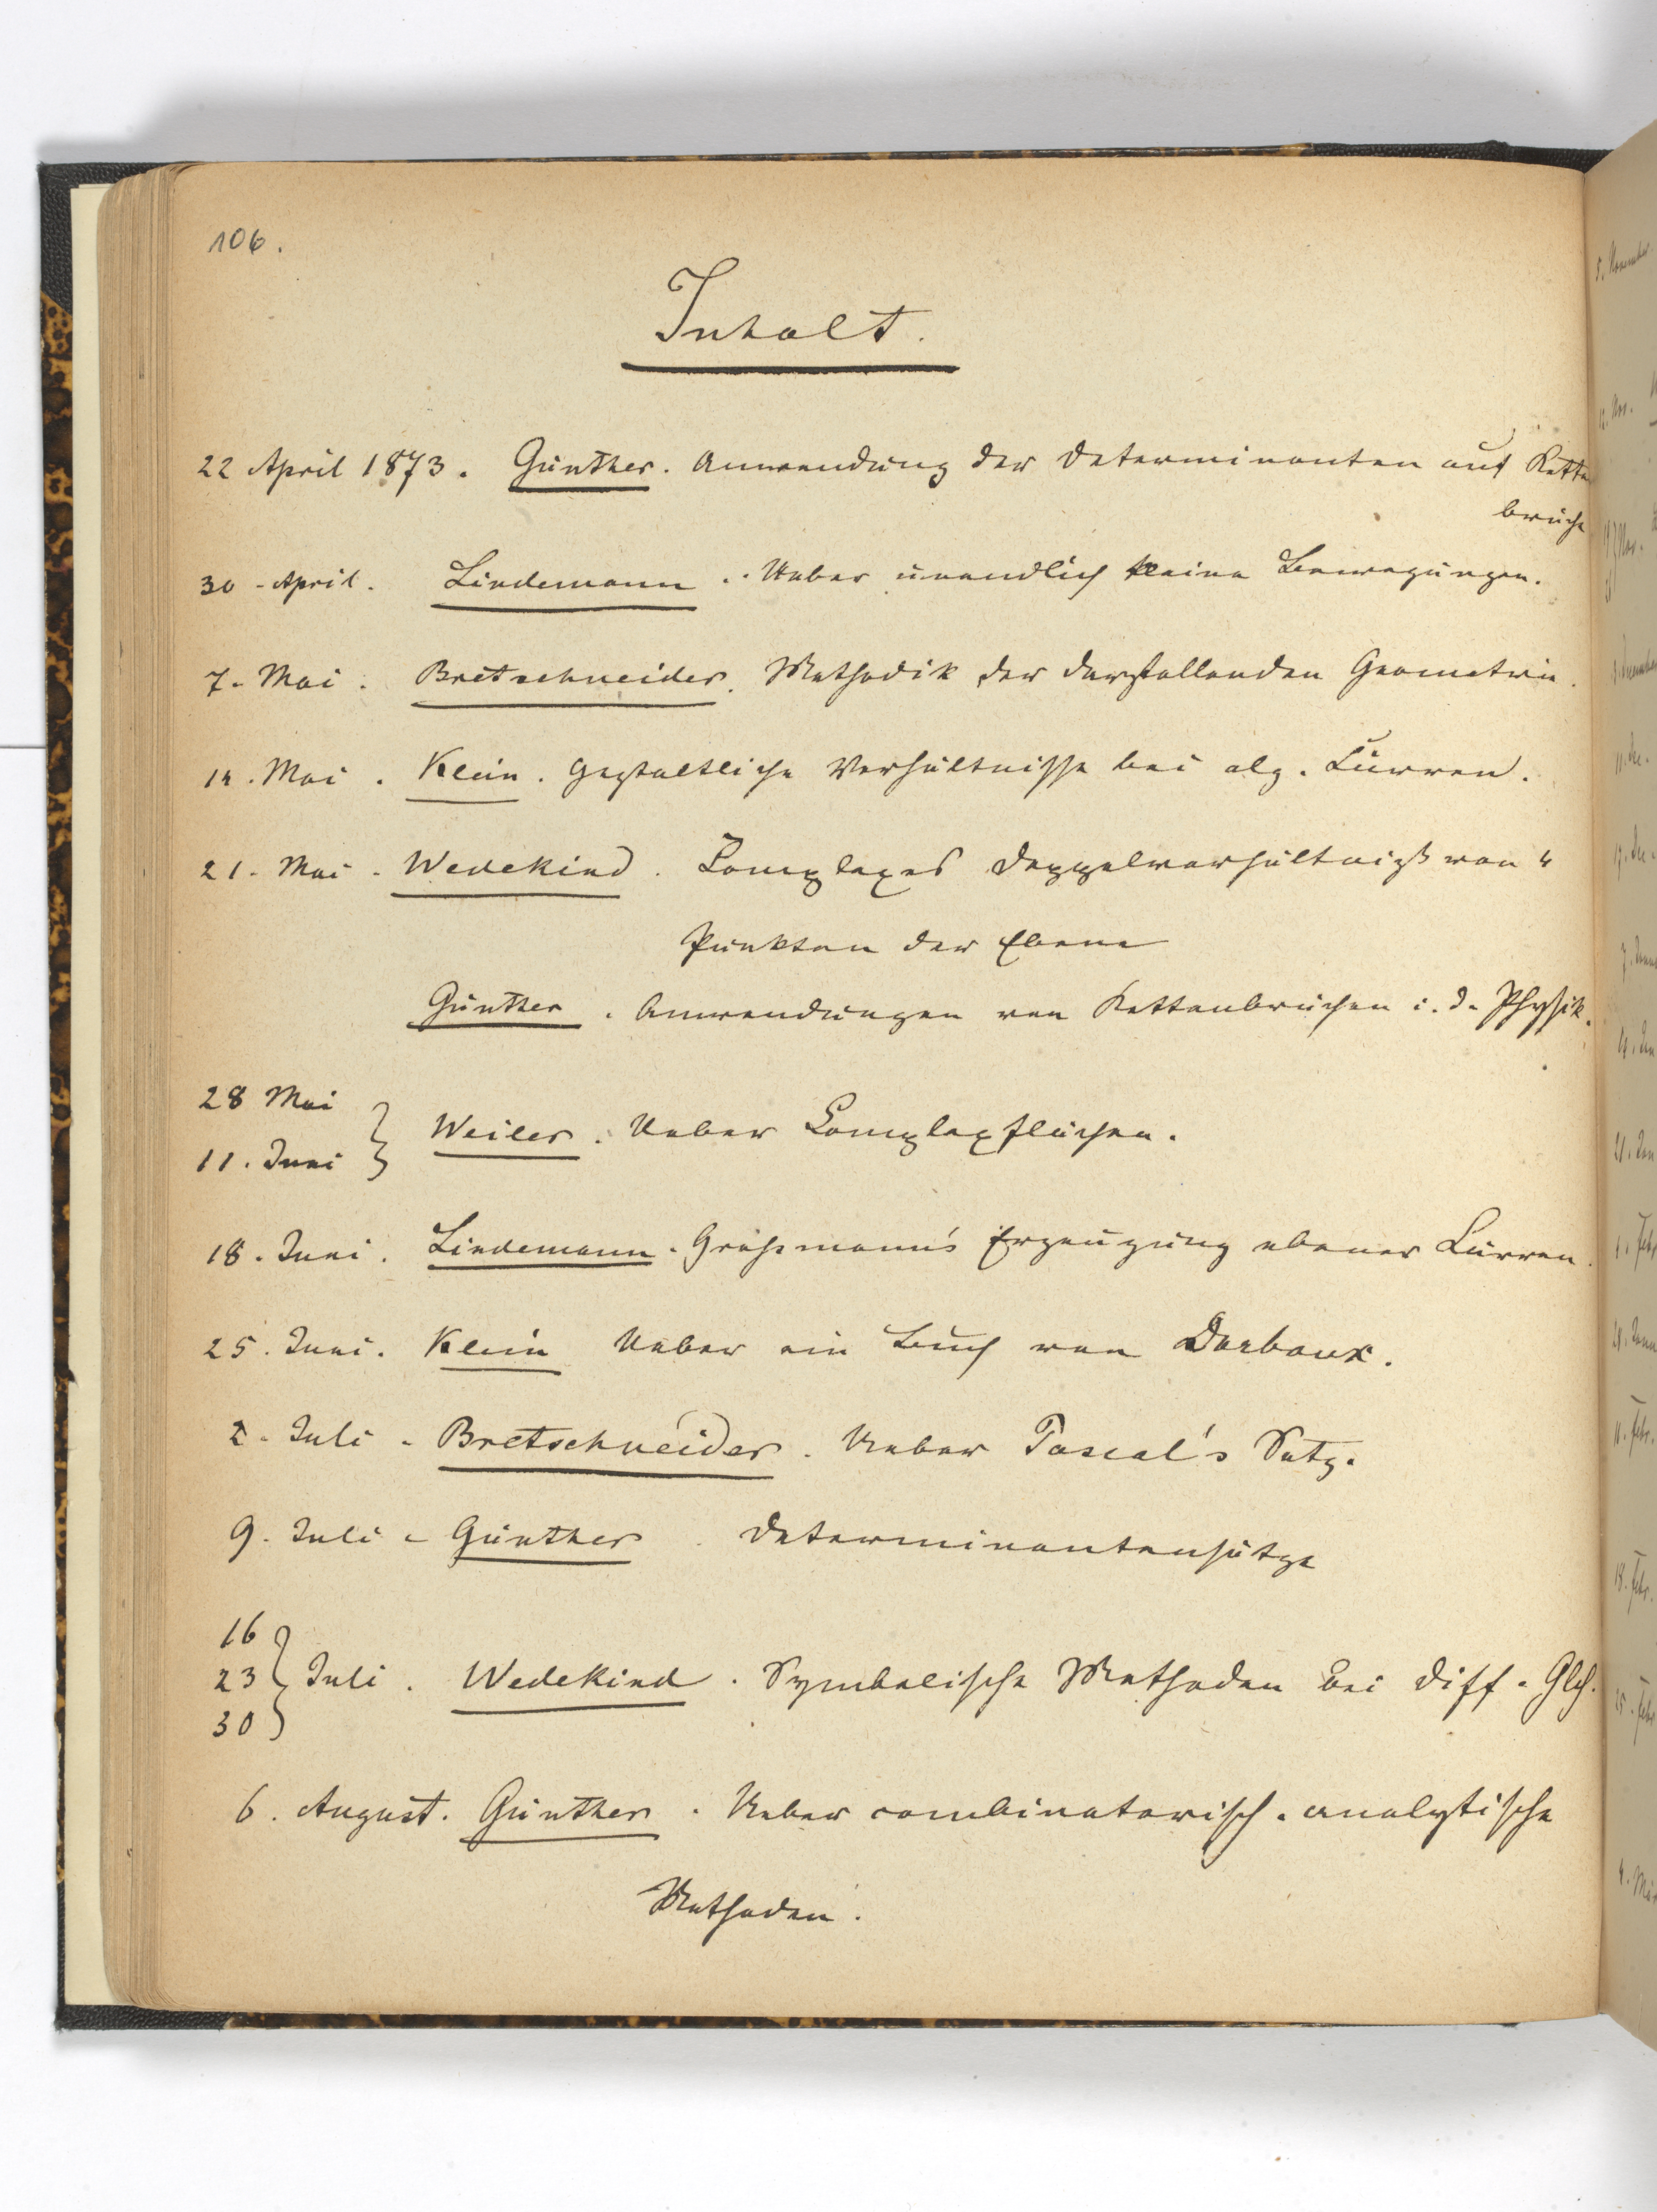 106.
Inhalt.
22 April 1873. Günther. Anwendung der Determinanten auf Kette
brüche
30 - April. Lindemann. Ueber unendlich kleine Bewegungen.
7. Mai. Bretschneider. Methodik der darstellenden Geometrie.
14. Mai. Klein. Gestaltliche Verhältnisse bei alg. Curven.
21. Mai. Wedekind. Complexes Doppelverhältniß von 4
Punkten der Ebene
Günther. Anwendungen von Kettenbrüchen i. d. Physik.
28 Mai
11. Juni } Weiler. Ueber Complexflächen.
18. Juni. Lindemann. Graßmann's Erzeugung ebener Curven.
25. Juni. Klein Ueber ein Buch von Darboux.
2. Juli. Bretschneider. Ueber Pascal's Satz.
9. Juli. Günther. Determinantensätze
16
23 } Juli. Wedekind. Symbolische Methoden bei Diff. Glch.
30
6. August. Günther. Ueber combinatorisch-analytische
Methoden.
5. November
12. Nov.
11. Dec.
11. Febr.
18. Febr.
25. Febr.